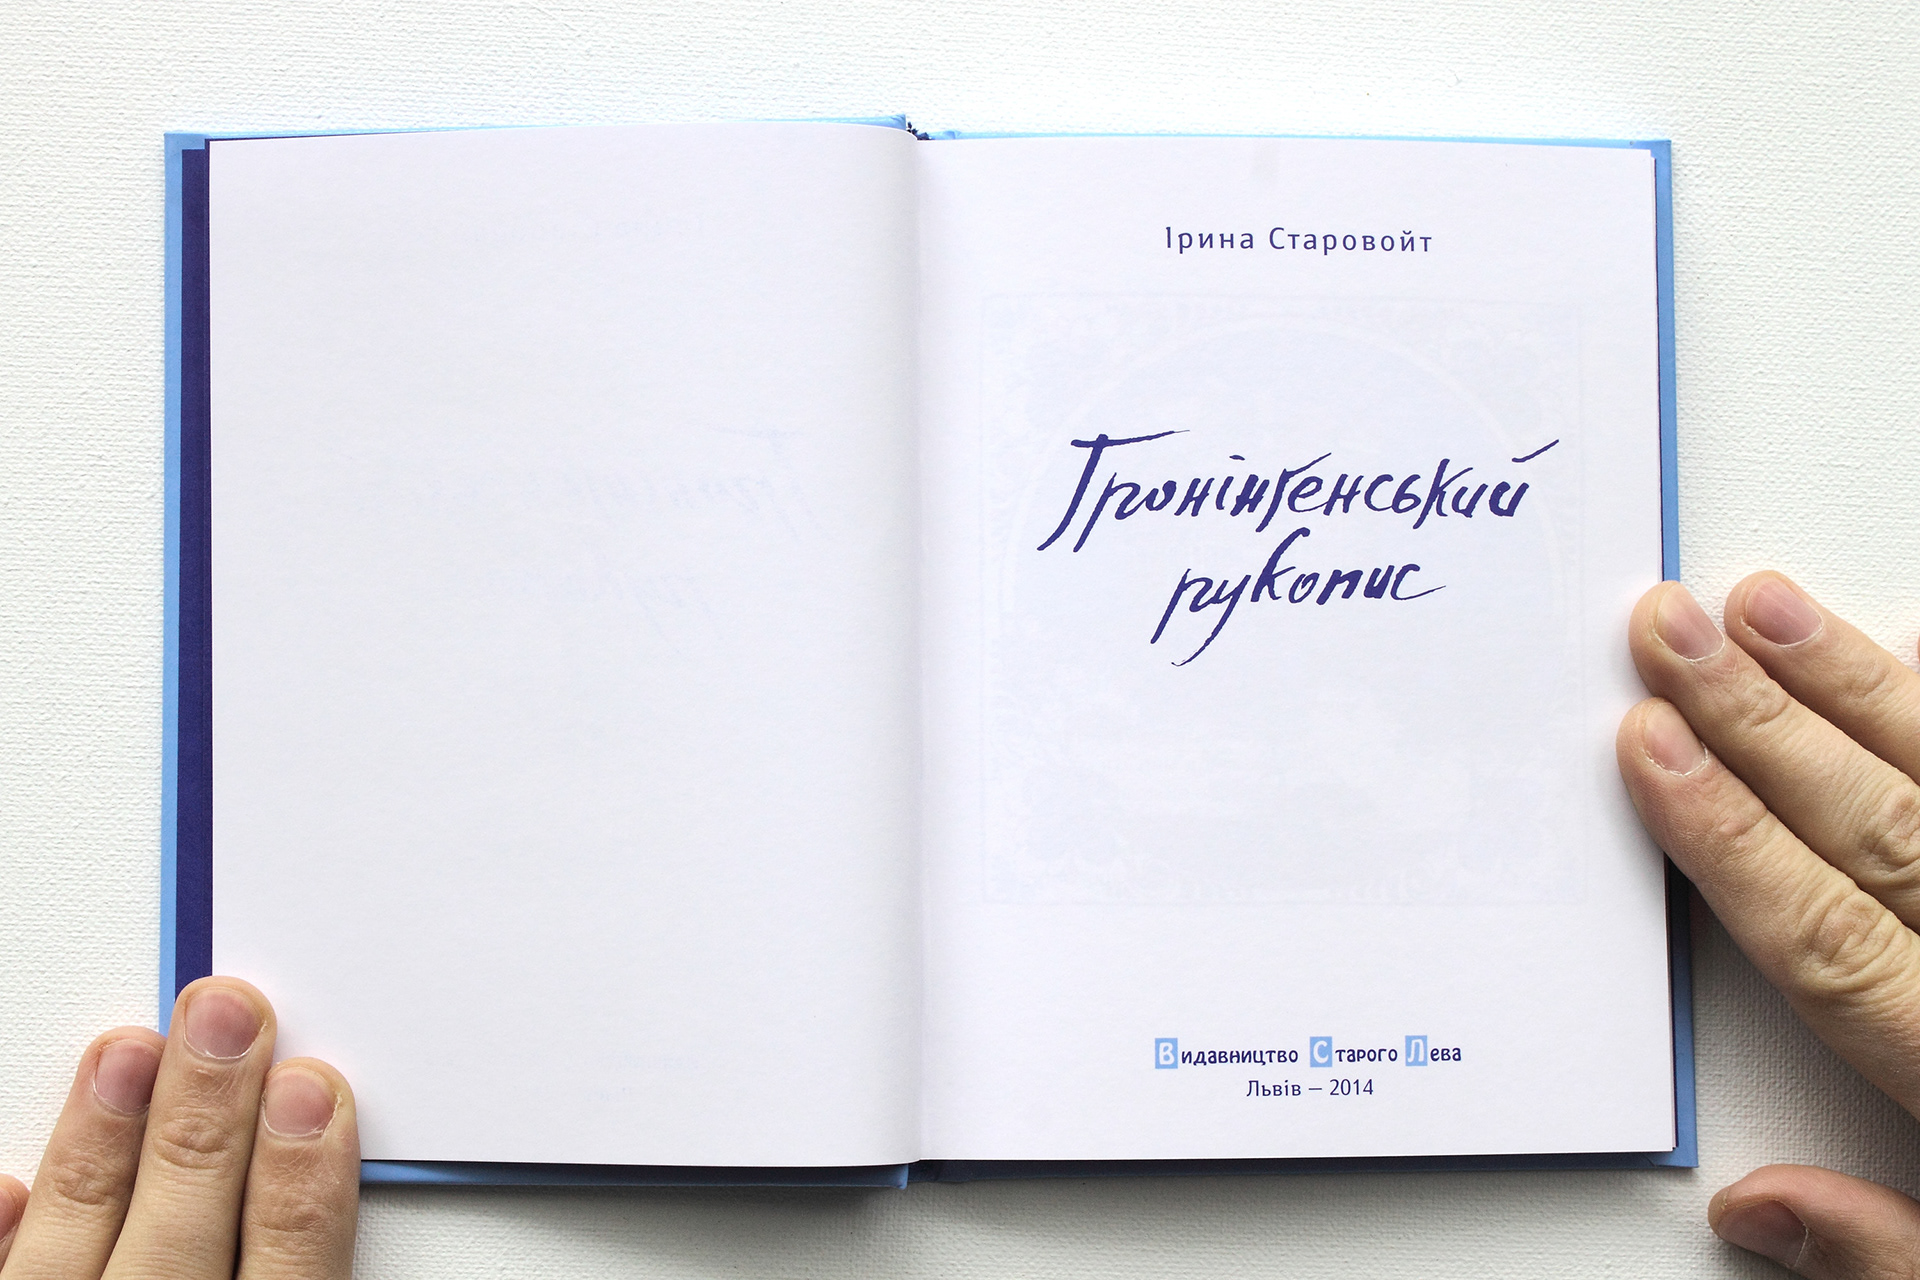 Ірина Старовойт
Ґронінґенський
рукопис
Видавництво Старого Лева
Львів – 2014